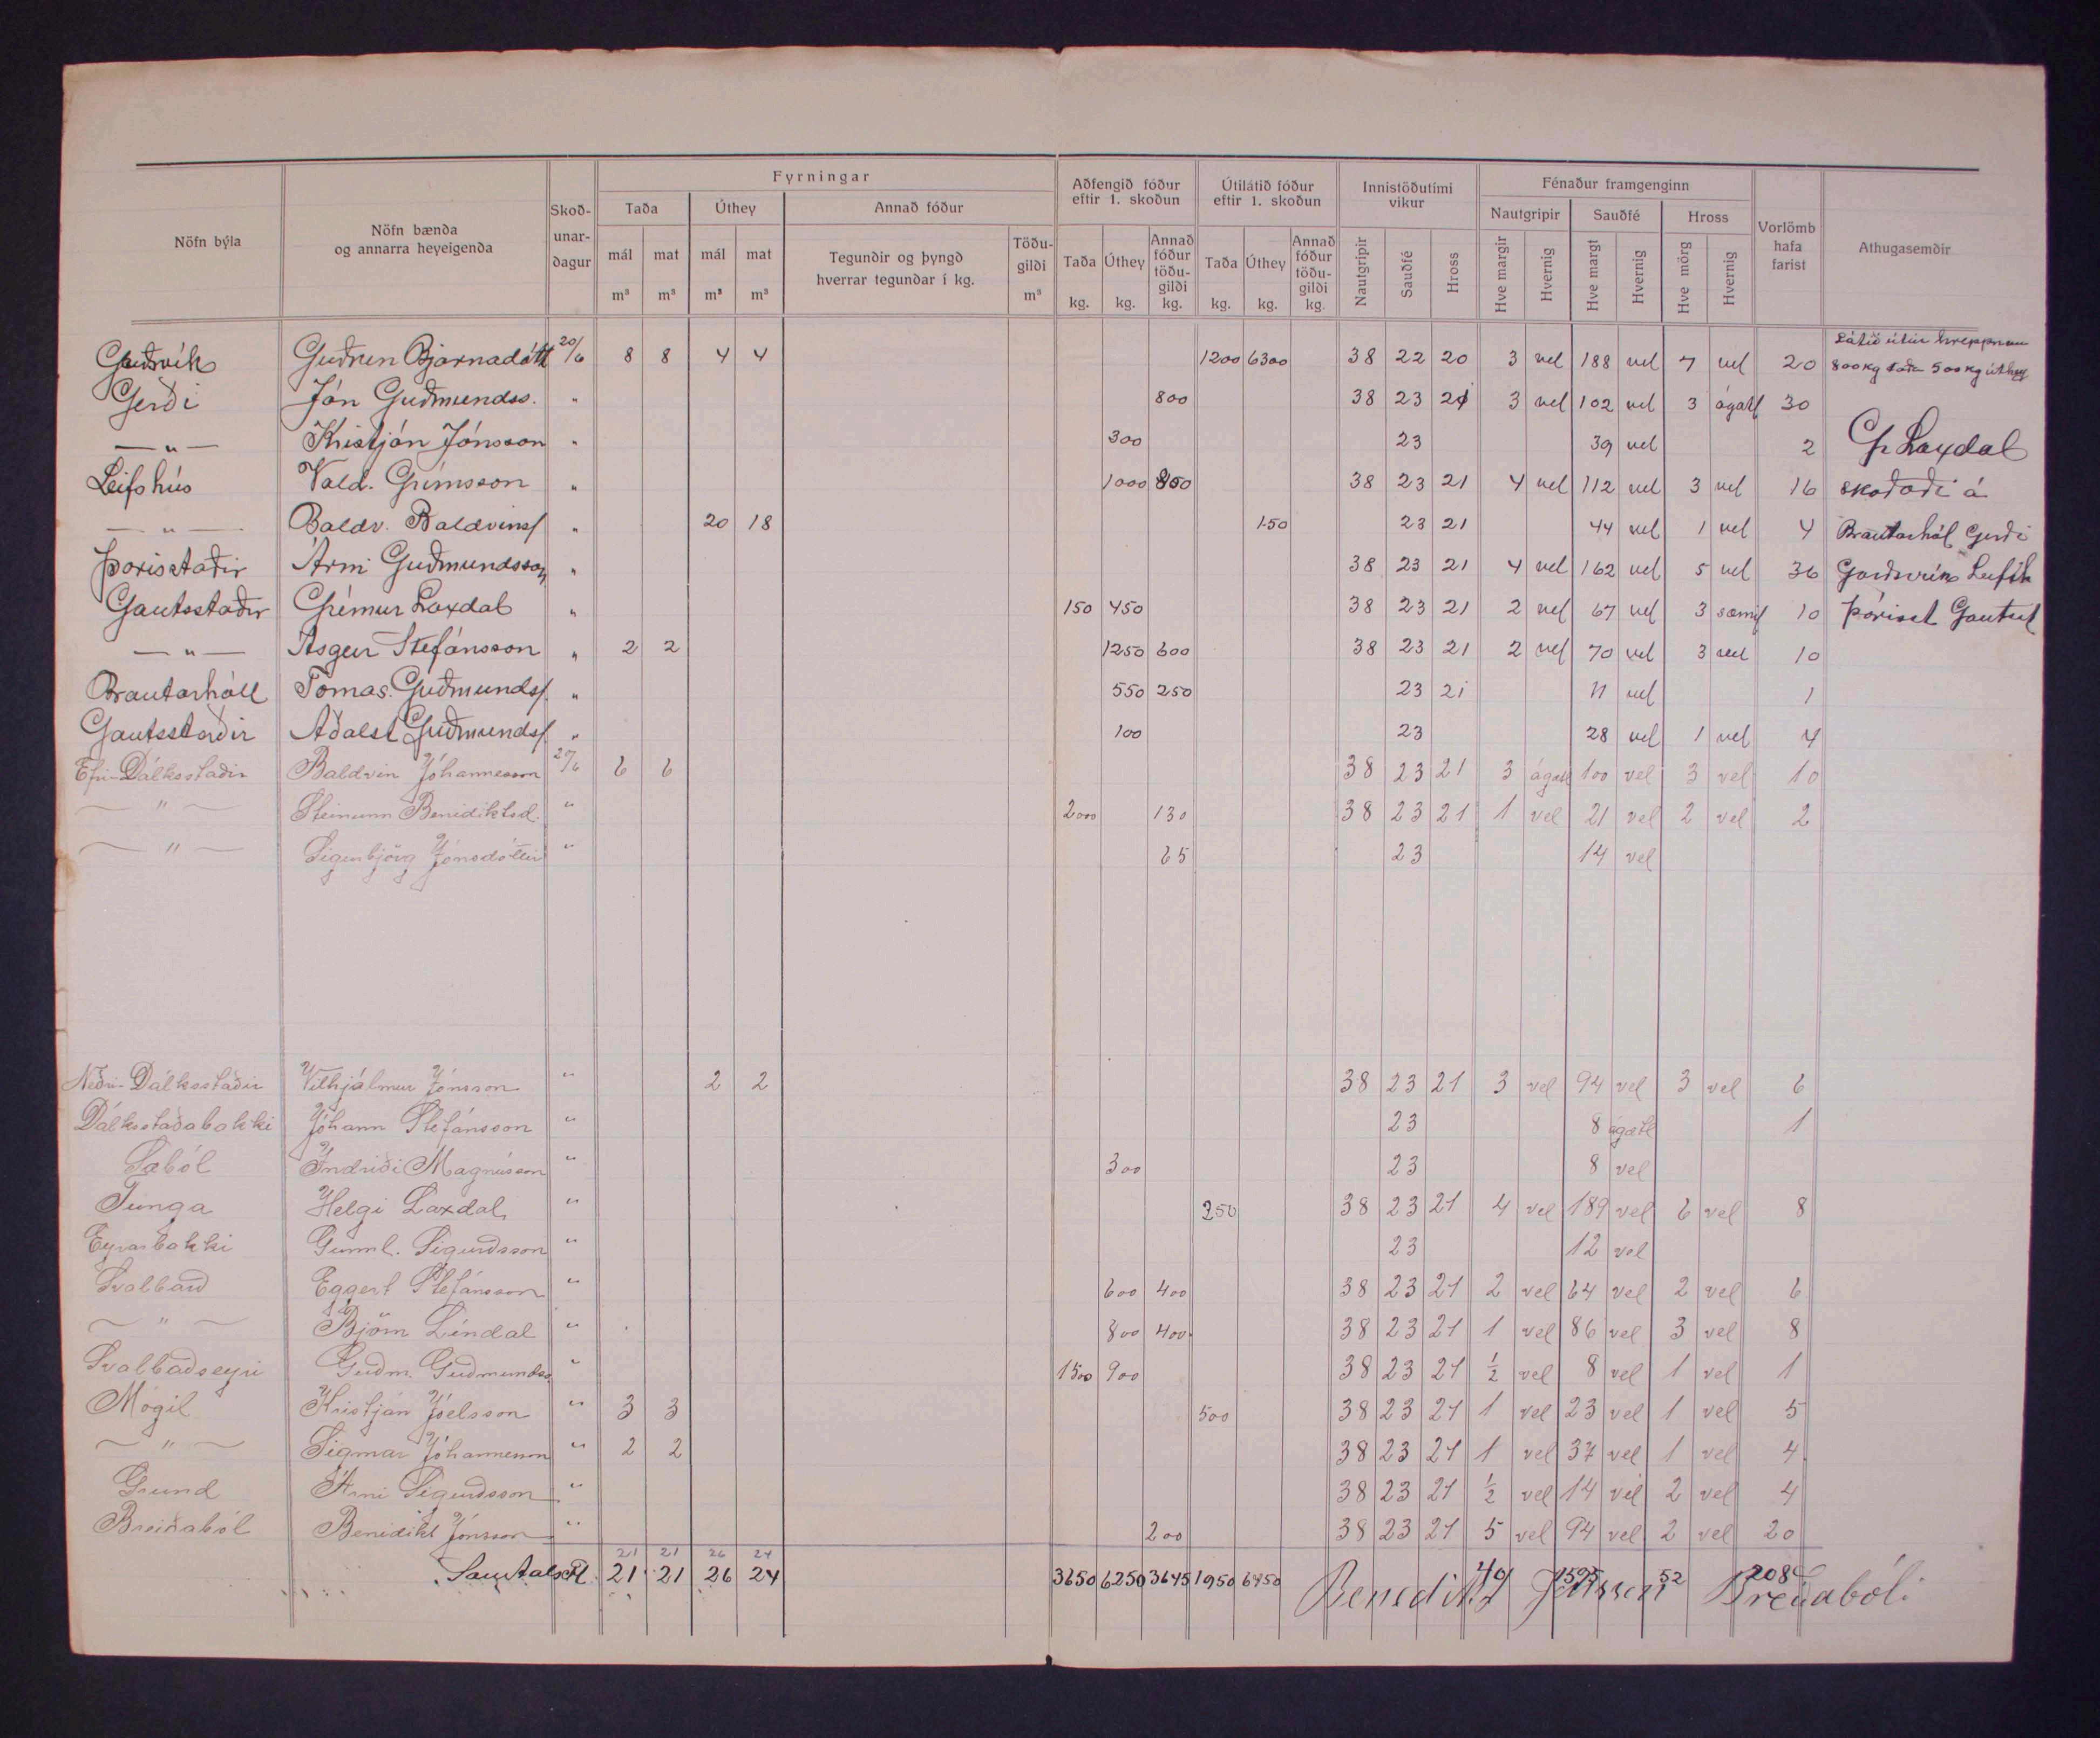 Nöfn býla
Nöfn bænda
og annarra heyeigenda
Skoð-
unar-
dagur
Fyrningar
Taða
Úthey
Annað fóður
mál mat mál mat
m³ m³ m³ m³
Tegundir og þyngd
hverrar tegundar í kg.
Töðu-
gildi
m³
Aðfengið fóður
eftir 1. skoðun
Taða kg. Úthey kg. Annað fóður töðu-gildi kg.
Útilátið fóður
eftir 1. skoðun
Taða kg. Úthey kg. Annað fóður töðu-gildi kg.
Innistöðutími
vikur
Nautgripir Sauðfé Hross
Fénaður framgenginn
Nautgripir Sauðfé Hross
Hve margir Hvernig Hve margt Hvernig Hve mörg Hvernig
Vorlömb
hafa
farist
Athugasemdir
Guðrún Bjarnadótt 20/6 8 8 4 4 1200 6300 38 22 20 3 vel 188 vel 7 vel 20 Látið útúr hreppnum 800 kg taða 500 kg úthey
Gerði Jón Guðmundss. " 800 38 23 21 3 vel 102 vel 3 ágætl 30
— " — Kristján Jónsson " 300 23 39 vel 2 Gr Laxdal
Leifshús Vald. Grímsson " 1000 850 38 23 21 4 vel 112 vel 3 vel 16 skoðaði á
— " — Baldv. Baldvinss " 20 18 150 23 21 44 vel 1 vel 4 Brautarhól Gerði
Þórisstaðir Árni Guðmundsson " 38 23 21 4 vel 162 vel 5 vel 36 Garðsvík Leifsh
Gautsstaðir Grímur Laxdal " 150 450 38 23 21 2 vel 67 vel 3 sæmil 10 Þórisst Gautsst
— " — Ásgeir Stefánsson " 2 2 1250 600 38 23 21 2 vel 70 vel 3 vel 10
Brautarhóll Tómas. Guðmundss. " 550 250 23 21 11 vel 1
Gautsstaðir Aðalst Guðmundss. " 100 23 28 vel 1 vel 4
Efri-Dálksstaðir Baldvin Jóhannesson 20/6 6 6 38 23 21 3 ágætl 100 vel 3 vel 10
— " — Steinunn Benidiktsd. " 2000 130 38 23 21 1 vel 21 vel 2 vel 2
— " — Sigurbjörg Jónsdóttir " 65 23 14 vel
Neðri-Dálksstaðir Vilhjálmur Jónsson " 2 2 38 23 21 3 vel 94 vel 3 vel 6
Dálksstaðabakki Jóhann Stefánsson " 23 8 ágætl 1
Sæból Indriði Magnússon " 300 23 8 vel
Tunga Helgi Laxdal " 250 38 23 21 4 vel 189 vel 6 vel 8
Eyrarbakki Gunnl. Sigurdsson " 23 12 vel
Svalbarð Eggert Stefánsson " 600 400 38 23 21 2 vel 64 vel 2 vel 6
— " — Björn Líndal " 800 400 38 23 21 1 vel 86 vel 3 vel 8
Svalbaðseyri Guðm. Guðmundss. " 1500 900 38 23 21 ½ vel 8 vel 1 vel 1
Mógil Kristján Jóelsson " 3 3 500 38 23 21 1 vel 23 vel 1 vel 5
— " — Sigmar Jóhannesson " 2 2 38 23 21 1 vel 37 vel 1 vel 4
Grund Árni Sigurdsson " 38 23 21 ½ vel 14 vel 2 vel 4
Breiðaból Benidikt Jónsson " 200 38 23 21 5 vel 94 vel 2 vel 20
21 21 26 24
Samtals 21 21 26 24 3650 6250 3645 1950 6450 40 1595 52 208
Benedikt Jónsson Breiðabóli